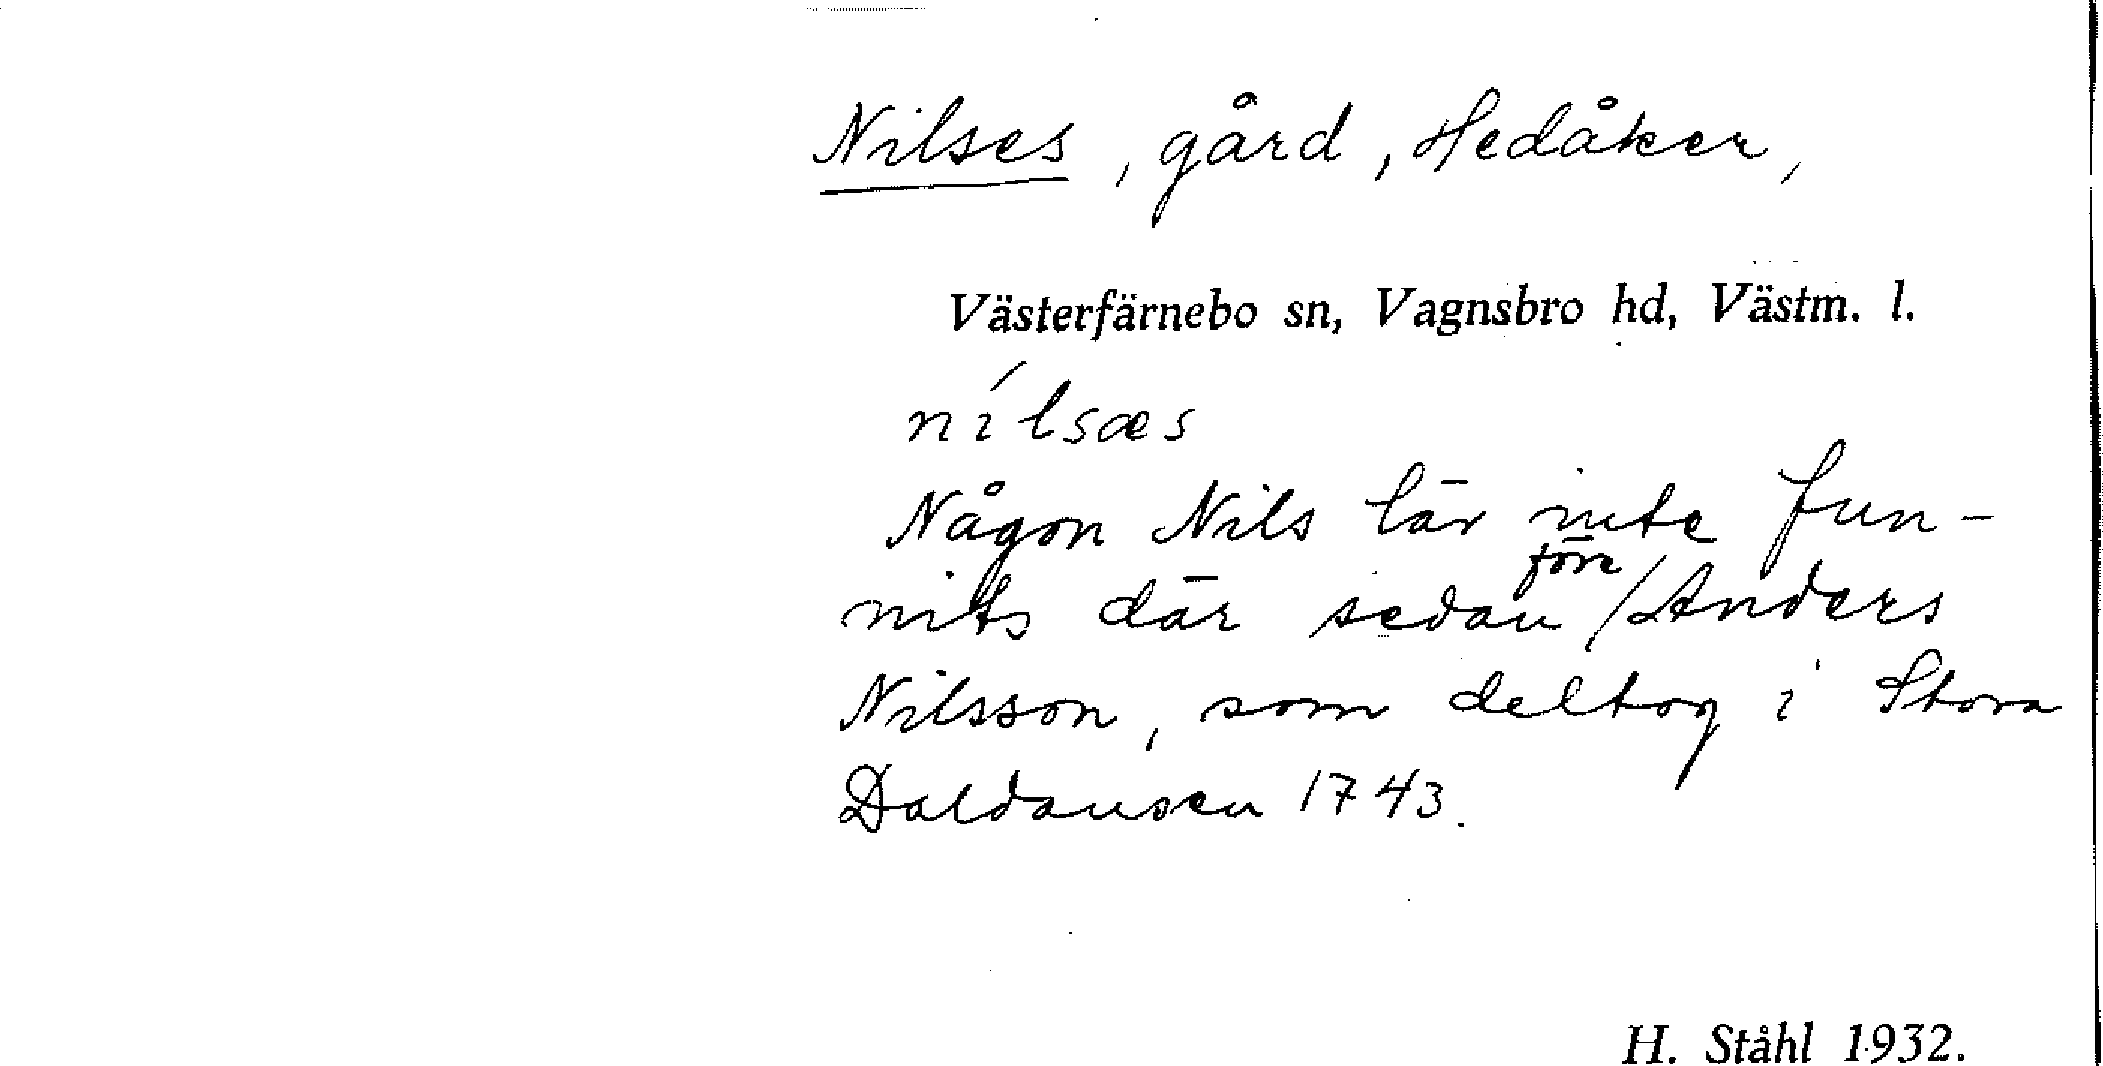 Nilses, gård, Hedåker,
Västerfärnebo sn, Vagnsbro hd, Västm. l.
nílsæs
Någon Nils lär inte fun-
nits där sedan /före Anders
Nilsson, som deltog i Stora
Daldansen 1743.
H. Ståhl 1932.